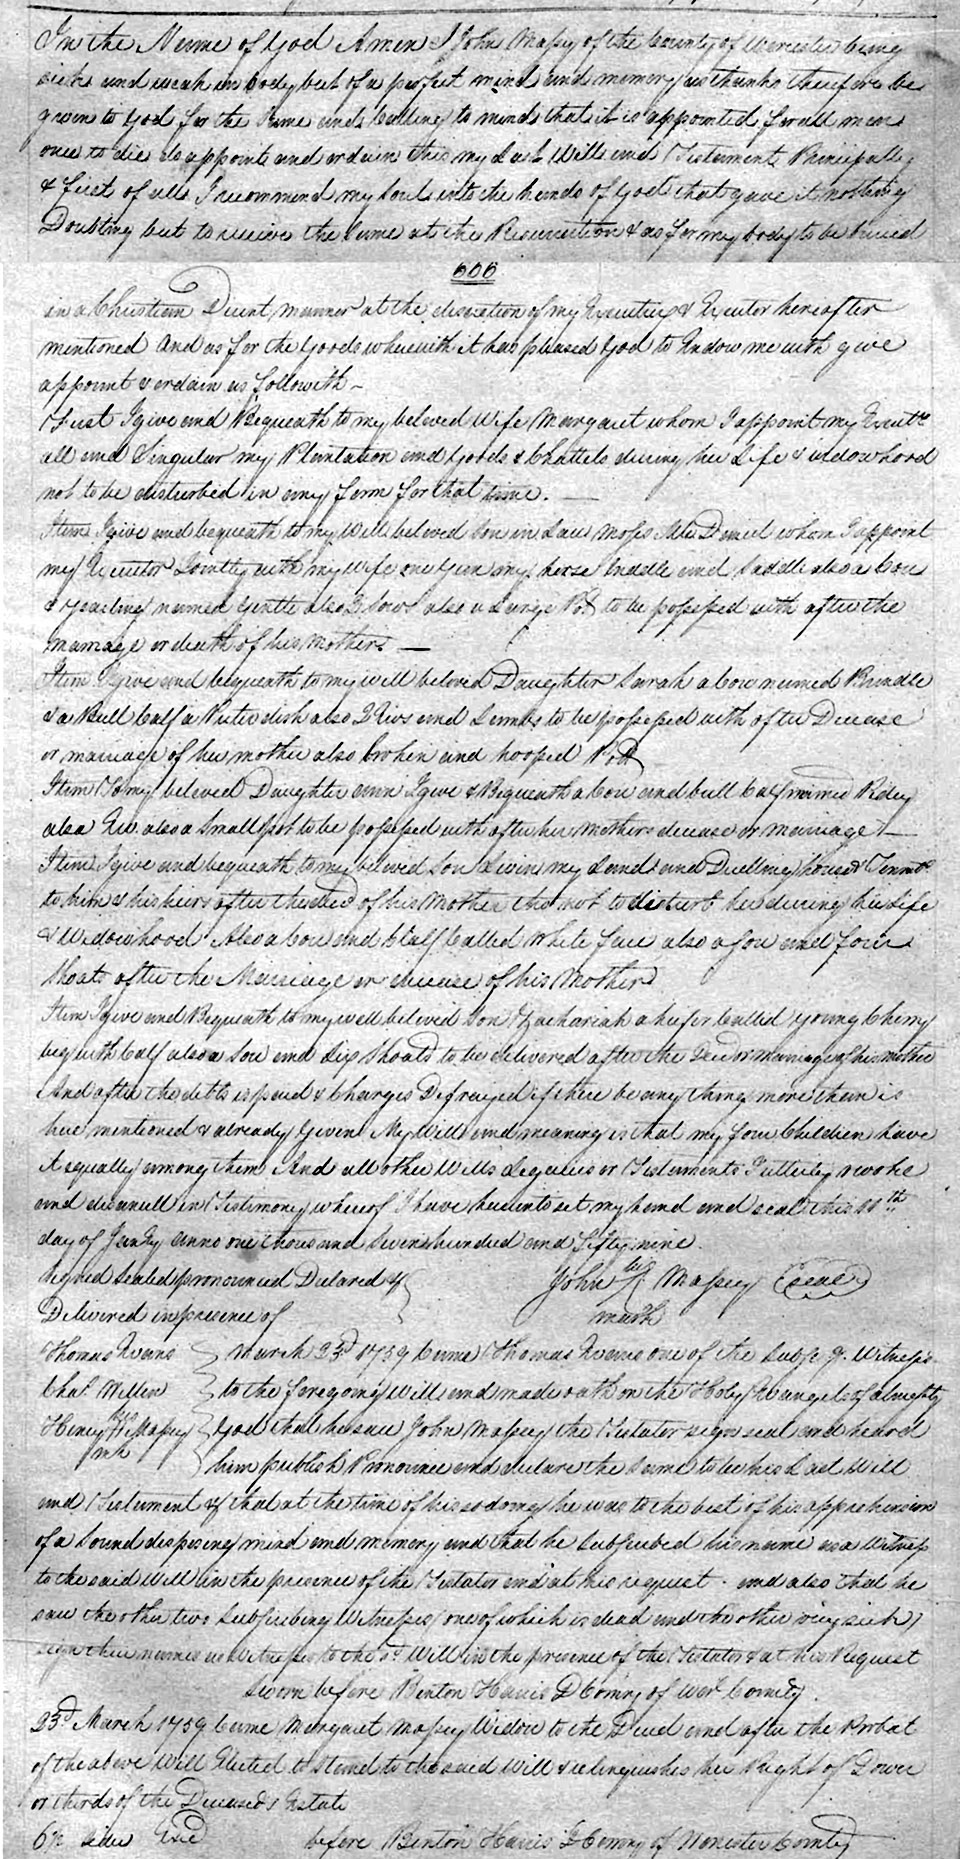 In the Name of God Amen I John Massey of the County of Worcester being
sick and weak in body but of a perfect mind and memory as thanks therefore be
given to God for the Same and calling to mind that it is appointed for all men
once to die do appoint and ordain this my Last Will and Testament Principally
& first of all I recommend my Soul into the hands of God that gave it nothing
Doubting but to receive the Same at the Resurrection & as for my body to be buried
606
in a Christian Decent manner at the discretion of my Executrix & Executor hereafter
mentioned And as for the Goods wherewith it has pleased God to Endow me with give
appoint & ordain as followith –
First I give and Bequeath to my beloved Wife Margaret whom I appoint my Execttx
all and Singular my Plantation and Goods & Chattels during her Life & widowhood
not to be disturbed in any form for that time. —
Item I give and bequeath to my Well beloved Son in Law Moses McDaniel whom I appoint
my Executor Jointly with my Wife one Gun my horse bridle and Saddle also a Cow
& yearling named Gentle also 2 Sows also a Large Pot to be possessed with after the
marriage or death of his Mothers —
Item I give and bequeath to my well beloved Daughter Sarah a Cow named Brindle
& a Bull Calf a Puter dish also 2 Ews and Lambs to be possessed with after Decease
or marriage of her mother also broken and hooped Pott
Item To my beloved Daughter Ann I give & Bequeath a Cow and bull Calf named Pidey
also Ew also a Small Pot to be possessed with after her Mothers decease or marriage —
Item I give and bequeath to my beloved Son Levin my Land and Dwelling house & Tenmts
to him & his heirs after the dec'd of his Mother tho not to disturb her during her Life
& Widowhood Also a Cow and Calf Called White face also a Sow and four
Shoats after the Marriage or decease of his Mother
Item I give and Bequeath to my well beloved Son Zachariah a heifer Called young Cherry
big with Calf also a Sow and Six Shoats to be delivered after the Dec'd or marriage of his mother
And after the debts is paid & Charges Defrayed if there be any thing more then is
here mentioned & already Given My Will and meaning is that my four Children have
it equally among them And all other Wills Legacies or Testaments I utterly revoke
and disanull in Testimony whereof I have hereunto set my hand and seal this 11th
day of Janry anno one thousand Seven hundred and fifty nine.
Signed Sealed pronounced Declared & John his Massey Seal
Delivered in presence of mark
Thomas Evans March 23d 1759 Came Thomas Evans one of the Subscrg. Witness
Chas. Miller to the foregoing Will and made oath on the Holy Evangels of almighty
Henry his H Massey God that he saw John Massey the Testator sign seal and heard
mk him publish Pronounce and declare the Same to be his Last Will
and Testament & that at the time of his so doing he was to the best of his apprehension
of a Sound disposing mind and memory and that he Subscribed his name as a Witness
to the said Will in the presence of the Testator and at his request. and also that he
saw the other two Subscribing Witnesses (one of which is dead and the other very sick)
sign their names as Witnesses to the sd. Will in the presence of the Testator & at his Request
Sworn before Benton Harris D Comry of Wor. County.
23d March 1759 Came Margaret Massey Widow to the Deced and after the Probat
of the above Will Elected to Stand to the said Will & relinquishes her Right of Dower
or thirds of the Deceased's Estate
before Benton Harris D Comry of Worcester County